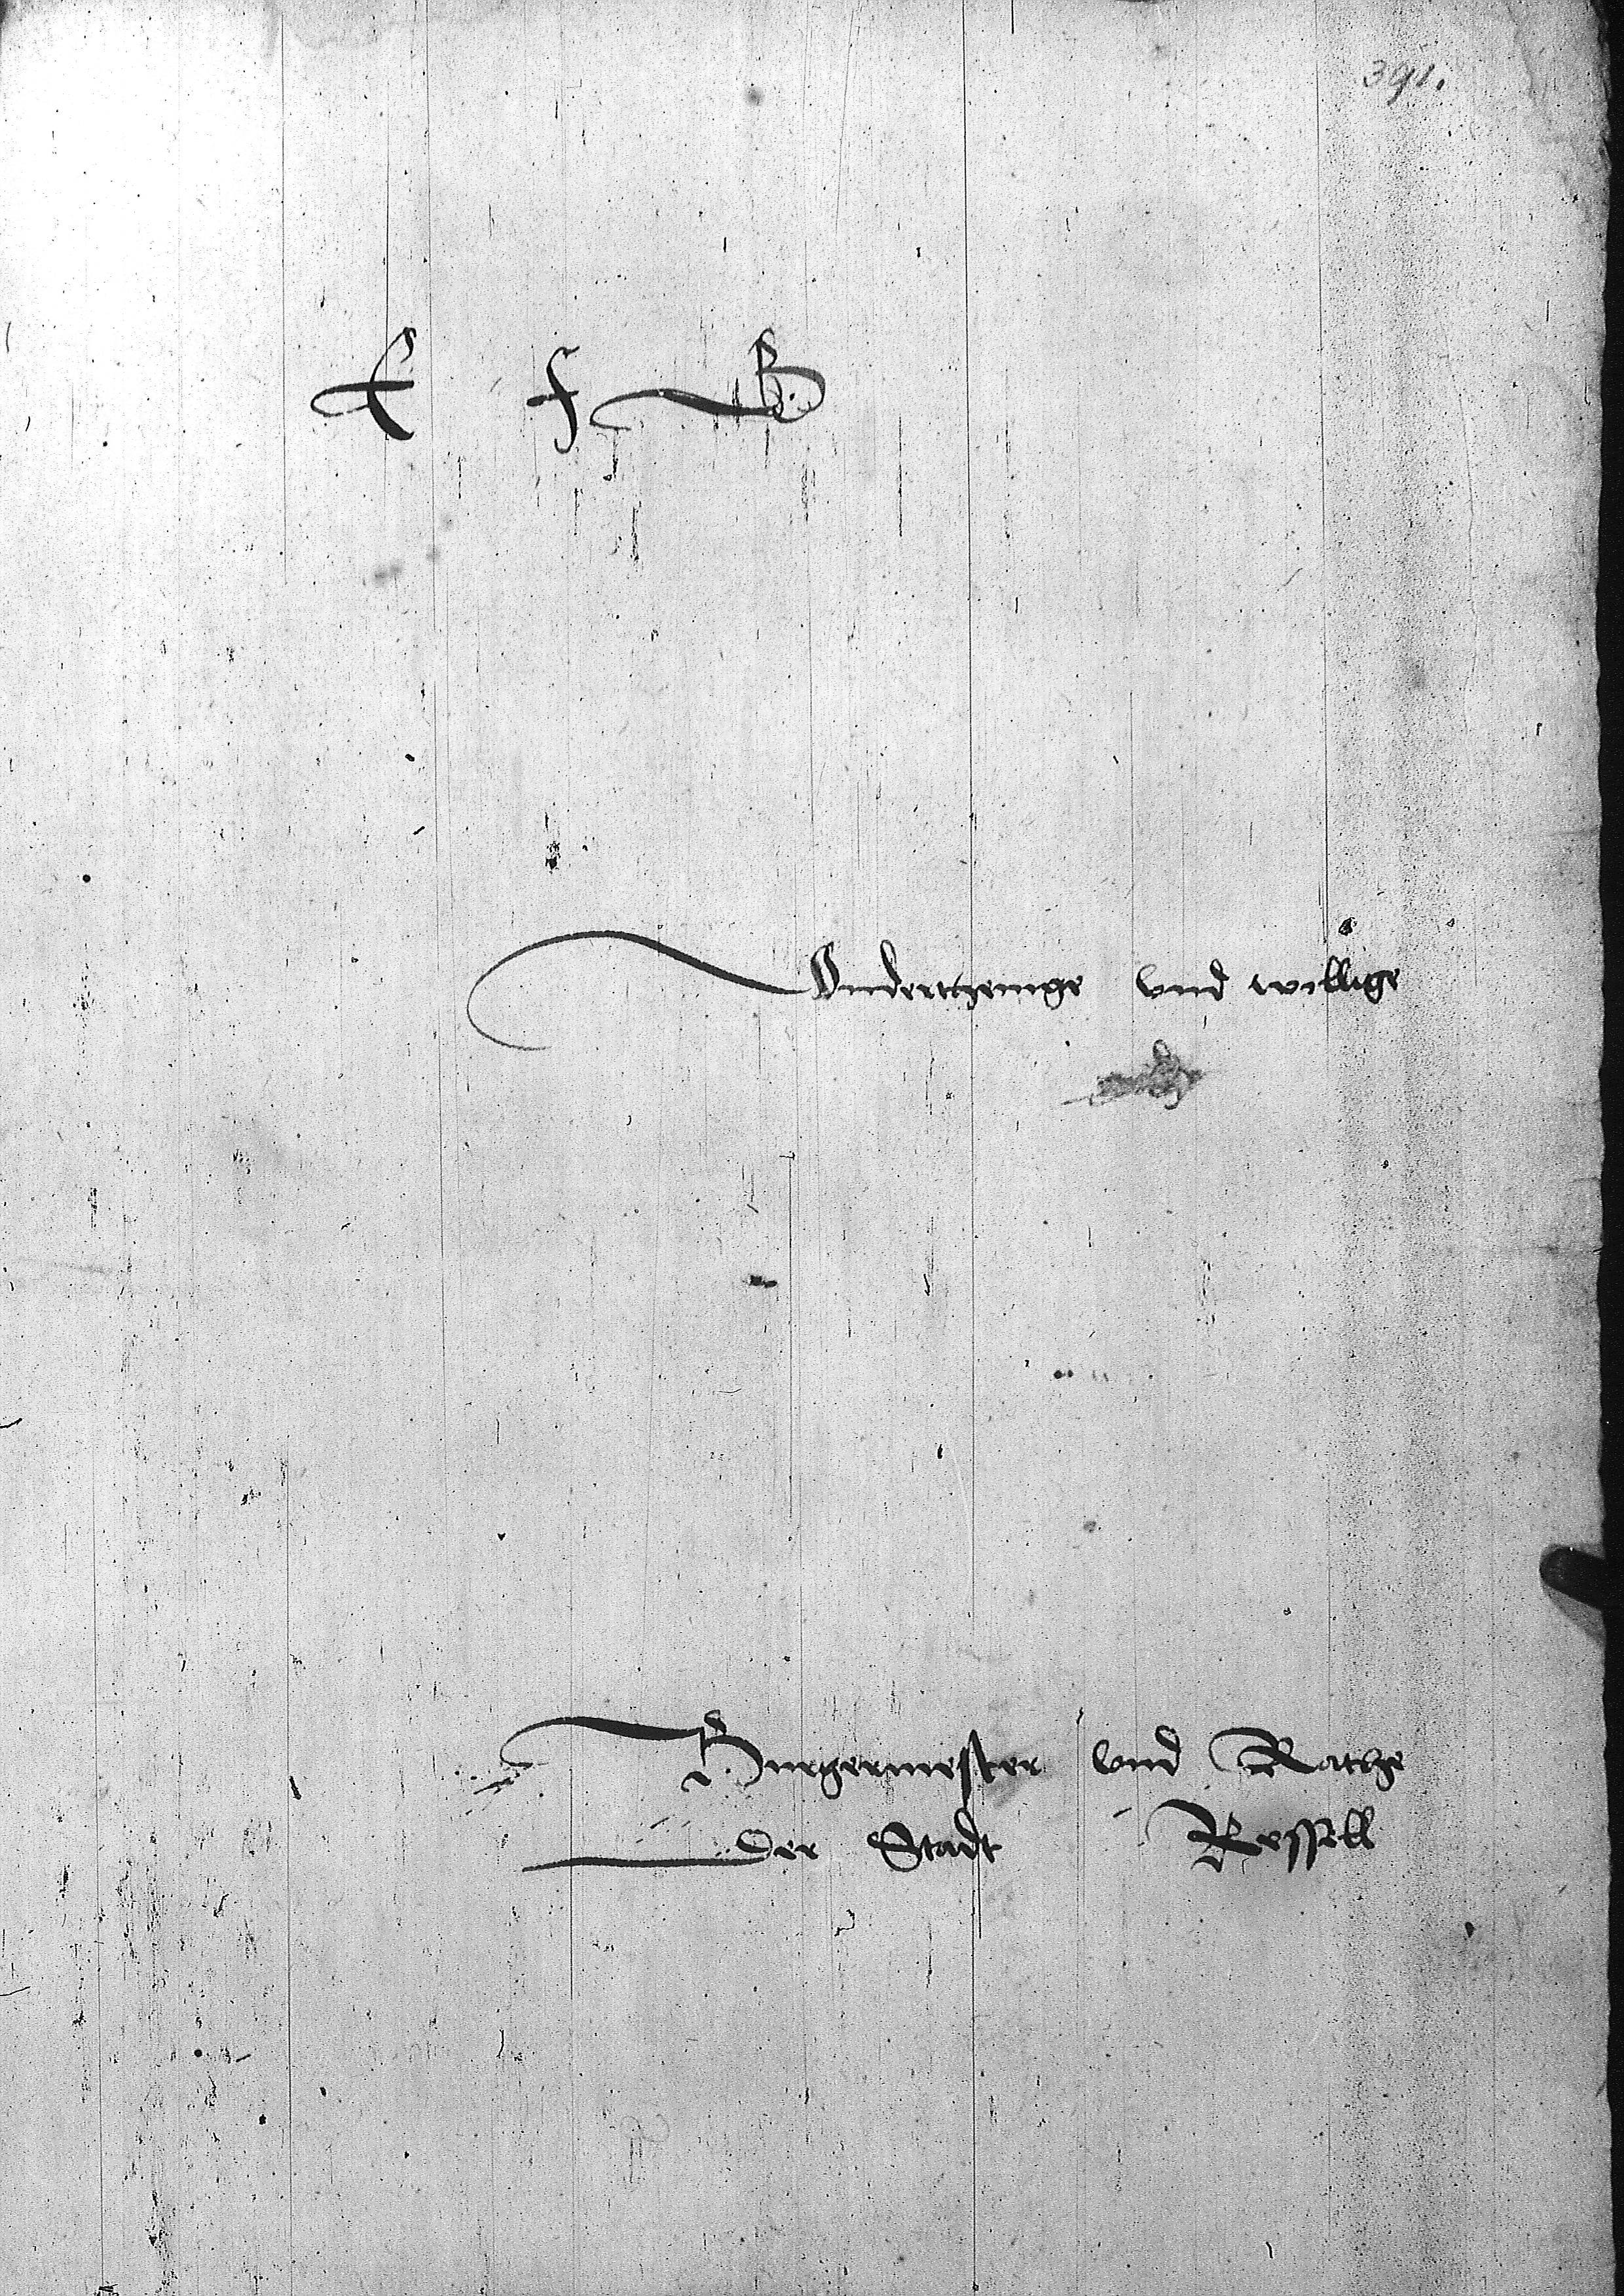 391.
E f G
Vndertzenige vnd willige
Burgermester vnd Rathe
der Stadt Ressell